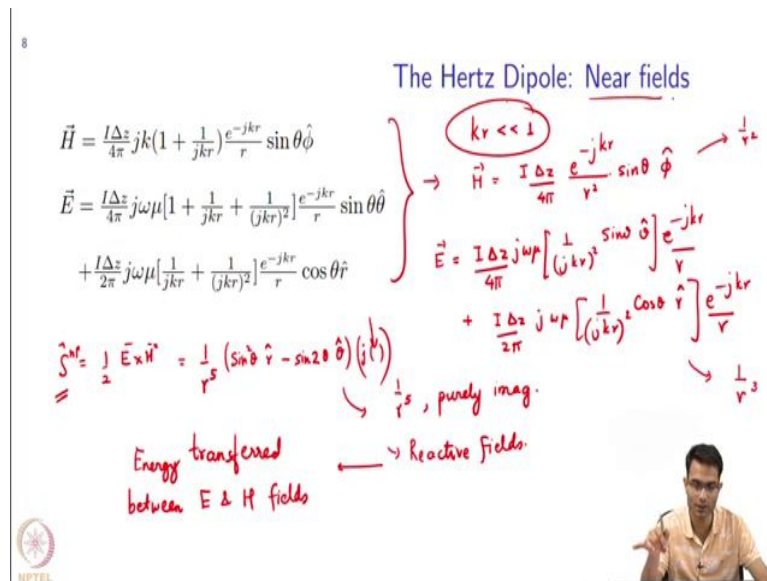 8
The Hertz Dipole: Near fields
kr << 1
\vec{H} = \frac{I\Delta z}{4\pi} jk(1 + \frac{1}{jkr}) \frac{e^{-jkr}}{r} \sin\theta \hat{\phi}
→ \vec{H} = \frac{I\Delta z}{4\pi} \frac{e^{-jkr}}{r^2} \sin\theta \hat{\phi} → \frac{1}{r^2}
\vec{E} = \frac{I\Delta z}{4\pi} j\omega\mu [1 + \frac{1}{jkr} + \frac{1}{(jkr)^2}] \frac{e^{-jkr}}{r} \sin\theta \hat{\theta}
+ \frac{I\Delta z}{2\pi} j\omega\mu [\frac{1}{jkr} + \frac{1}{(jkr)^2}] \frac{e^{-jkr}}{r} \cos\theta \hat{r}
\vec{E} = \frac{I\Delta z}{4\pi} j\omega\mu [\frac{1}{(jkr)^2} \sin\theta \hat{\theta}] \frac{e^{-jkr}}{r}
+ \frac{I\Delta z}{2\pi} j\omega\mu [\frac{1}{(jkr)^2} \cos\theta \hat{r}] \frac{e^{-jkr}}{r}
→ \frac{1}{r^3}
= \frac{1}{2} \vec{E} × \vec{H}^* = \frac{1}{r^5} (\sin^2\theta \hat{r} - \sin 2\theta \hat{\theta})
→ \frac{1}{r^5}, purely imag.
→ Reactive fields.
Energy transferred ←
between E & H fields
NPTEL